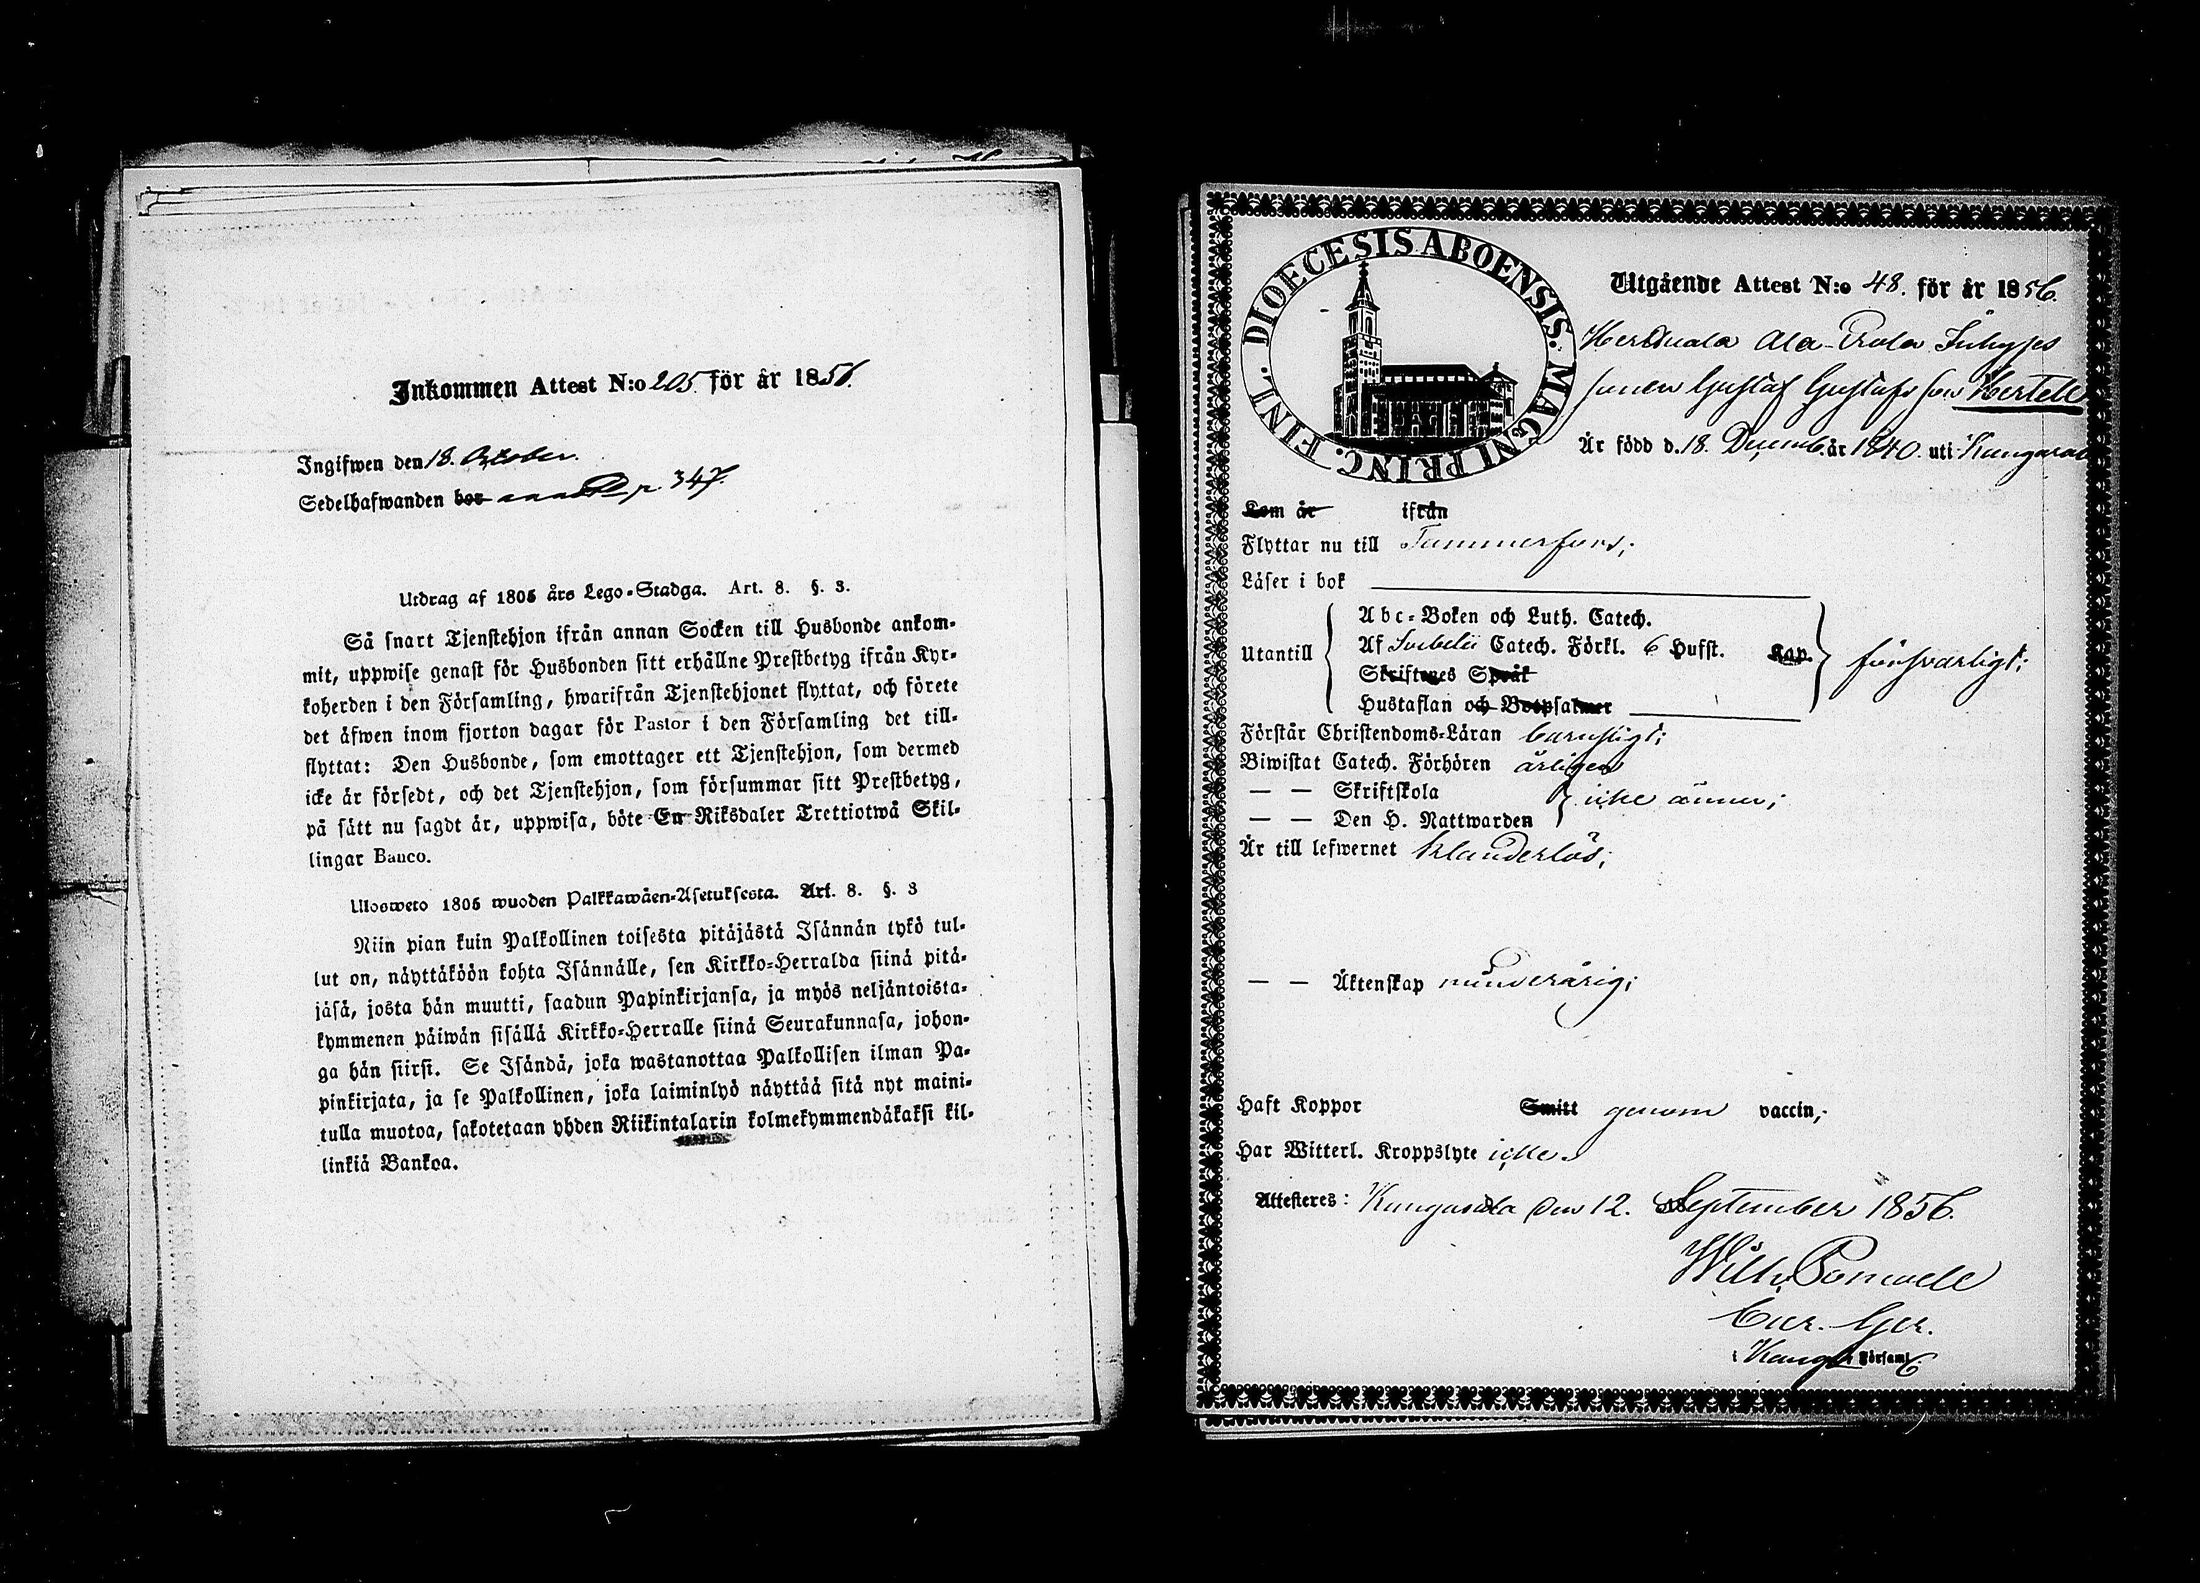 Inkommen Attest N:o 205. för år 1856.
Ingifwen den 18. Oktober.
Sedelhafwanden bor p. 347.
Utdrag af 1805 års Lego-Stadga. Art. 8. §. 3.
Så snart Tjenstehjon ifrån annan Socken till Husbonde ankom-
mit, uppwise genast för Husbonden sitt erhållne Prestbetyg ifrån Kyr-
koherden i den Församling, hwarifrån Tjenstehjonet flyttat, och förete
det äfwen inom fjorton dagar för Pastor i den Församling det till-
flyttat: Den Husbonde, som emottager ett Tjenstehjon, som dermed
icke är försedt, och det Tjenstehjon, som försummar sitt Prestbetyg,
på sätt nu sagdt är, uppwisa, böte En Riksdaler Trettiotwå Skil-
lingar Banco.
Ulosweto 1805 wuoden Palkkawäen-Asetuksesta. Art. 8. §. 3
Niin pian kuin Palkollinen toisesta pitäjästä Isännän tykö tul-
lut on, näyttäköön kohta Isännälle, sen Kirkko-Herralda siinä pitä-
jäsä, josta hän muutti, saadun Papinkirjansa, ja myös neljäntoista-
kymmenen päiwän sisällä Kirkko-Herralle siinä Seurakunnasa, johon-
ga hän siirsi. Se Isändä, joka wastanottaa Palkollisen ilman Pa-
pinkirjata, ja se Palkollinen, joka laiminlyö näyttää sitä nyt maini-
tulla muotoa, sakotetaan yhden Riikintalarin kolmekymmendäkaksi kil-
linkiä Bankoa.
DIOECESIS ABOENSIS. MAGNI PRINC. FINL.
Utgående Attest N:o 48. för år 1856.
Ala- Inhyses
sonen Gustaf Gustafsson Hertell
Är född d. 18. Decemb. år 1840. uti Kungasala
Kom år ifrån
Flyttar nu till Tammerfors;
Läser i bok
Utantill
Abc-Boken och Luth. Catech.
Af Svebelii Catech. Förkl. 6 Hufst. Kap. försvarligt;
Skriftenes Språk
Hustaflan och Botpsalmer
Förstår Christendoms-Läran barnsligt;
Biwistat Catech. Förhören årligen
— — Skriftskola
— — Den H. Nattwarden icke ännu;
Är till lefwernet klanderlös;
— — Äktenskap minderårig;
Haft Koppor Smitt genom vaccin;
Har Witterl. Kroppslyte icke.
Attesteres: Kungasala den 12. September 1856.
Wilh.
Cur. Ger.
i Kang Församl.